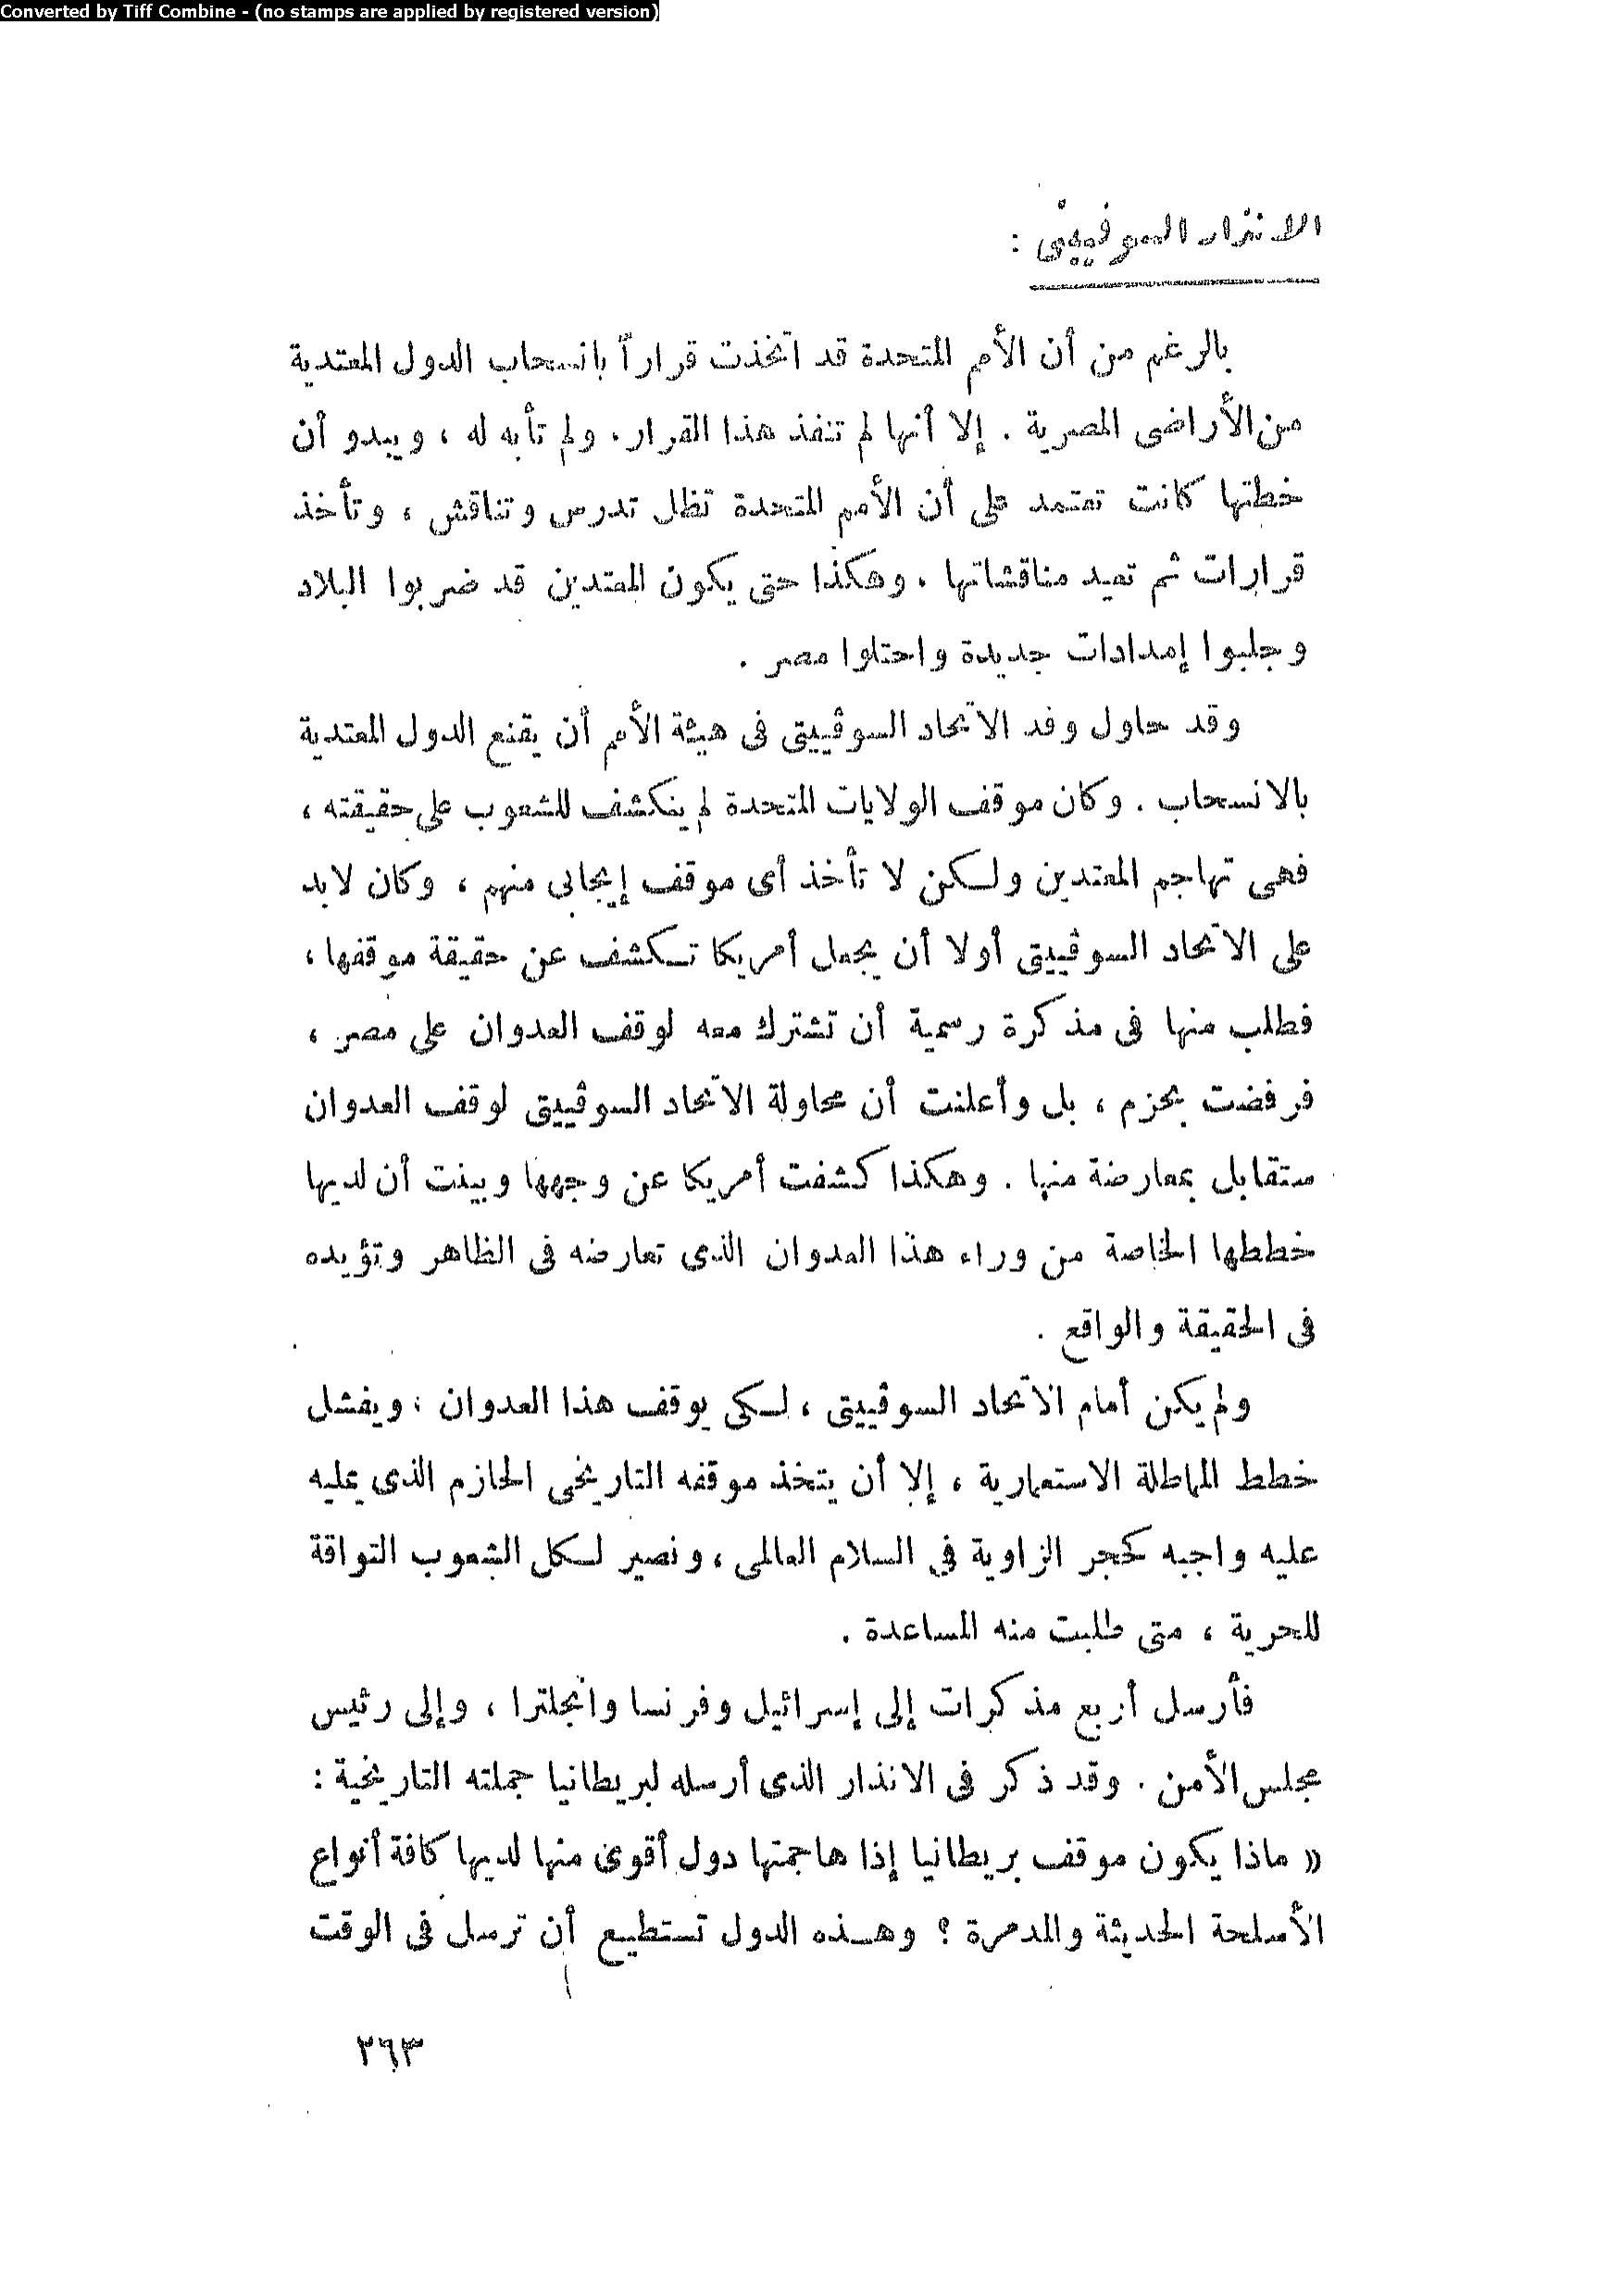 Converted by Tiff Combine - (no stamps are applied by registered version)
الانذار السوفييتى :
بالرغم من أن الأمم المتحدة قد اتخذت قراراً بانسحاب الدول المعتدية
من الأراضى المصرية . إلا أنها لم تنفذ هذا القرار . ولم تأبه له ، ويبدو أن
خطتها كانت تعتمد على أن الأمم المتحدة تظل تدرس وتناقش ، وتأخذ
قرارات ثم تعيد مناقشاتها . وهكذا حتى يكون المعتدين قد ضربوا البلاد
وجلبوا إمدادات جديدة واحتلوا مصر .
وقد حاول وفد الاتحاد السوڤييتى فى هيئة الأمم أن يقنع الدول المعتدية
بالانسحاب . وكان موقف الولايات المتحدة لم ينكشف للشعوب على حقيقته ،
فهى تهاجم المعتدين ولكن لا تأخذ أى موقف إيجابى منهم ، وكان لابد
على الاتحاد السوڤييتى أولا أن يجعل أمريكا تكشف عن حقيقة موقفها ،
فطلب منها فى مذكرة رسمية أن تشترك معه لوقف العدوان على مصر ،
فرفضت بحزم ، بل وأعلنت أن محاولة الاتحاد السوڤييتى لوقف العدوان
ستقابل بمعارضة منها . وهكذا كشفت أمريكا عن وجهها وبينت أن لديها
خططها الخاصة من وراء هذا العدوان الذى تعارضه فى الظاهر وتؤيده
فى الحقيقة والواقع .
ولم يكن أمام الاتحاد السوڤييتى ، لكى يوقف هذا العدوان ، ويفشل
خطط المماطلة الاستعمارية ، إلا أن يتخذ موقفه التاريخى الحازم الذى يمليه
عليه واجبه كحجر الزاوية فى السلام العالمى ، ونصير لكل الشعوب التواقة
للحرية ، متى طلبت منه المساعدة .
فأرسل أربع مذكرات إلى إسرائيل وفرنسا وانجلترا ، وإلى رئيس
مجلس الأمن . وقد ذكر فى الانذار الذى أرسله لبريطانيا جملته التاريخية :
« ماذا يكون موقف بريطانيا إذا هاجمتها دول أقوى منها لديها كافة أنواع
الأسلحة الحديثة والمدمرة ؟ وهذه الدول تستطيع أن ترسل فى الوقت
٢٦٣